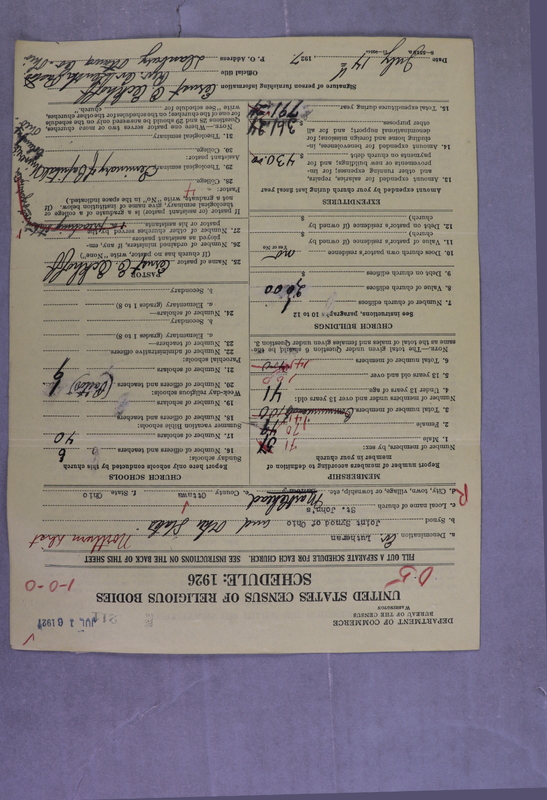 DEPARTMENT OF COMMERCE
BUREAU OF THE CENSUS
WASHINGTON
JUL 16 1927
UNITED STATES CENSUS OF RELIGIOUS BODIES
SCHEDULE: 1926
0-5
1-0-0
FILL OUT A SEPARATE SCHEDULE FOR EACH CHURCH. SEE INSTRUCTIONS ON THE BACK OF THIS SHEET
a. Denomination Ev. Lutheran
b. Synod Joint Synod of Ohio and other States
c. Local name of church St. John's
d. City, town, village, or township, etc. Marblehead e. County Ottawa f. State Ohio
R
MEMBERSHIP
Report number of members according to definition of member in your church
Number of members, by sex:
1. Male 71
2. Female 70
3. Total number of members
Number of members under and over 13 years old:
4. Under 13 years of age 41
5. 13 years old and over
6. Total number of members
NOTE.—The total given under Question 6 should be the same as the total of males and females given under Question 3.
CHURCH BUILDINGS
See instructions, Paragraphs 10 to 12
7. Number of church edifices 1
8. Value of church edifices $
9. Debt on church edifices $
10. Does church own pastor's residence no
Yes or No
11. Value of pastor's residence (if owned by church) $
12. Debt on pastor's residence (if owned by church) $
EXPENDITURES
Amount expended by church during last fiscal year
13. Amount expended for salaries, repairs, and other running expenses; for improvements or new buildings; and for payments on church debt $ 430.00
14. Amount expended for benevolences, including home and foreign missions; for denominational support; and for all other purposes
15. Total expenditures during year
CHURCH SCHOOLS
Report here only schools conducted by this church
Sunday schools:
16. Number of officers and teachers 6
17. Number of scholars 40
Summer vacation Bible schools:
18. Number of officers and teachers
19. Number of scholars
Week-day religious schools:
20. Number of officers and teachers (Pastor) 1
21. Number of scholars 9
Parochial schools:
22. Number of administrative officers
23. Number of teachers—
a. Elementary (grades 1 to 8)
b. Secondary
24. Number of scholars—
a. Elementary (grades 1 to 8)
b. Secondary
PASTOR
25. Name of pastor Ernst C.
(If church has no pastor, write "None")
26. Number of assistant ministers, if any, employed as assistant pastors
27. Number of other churches served by the pastor or his assistants
If pastor (or assistant pastor) is a graduate of a college or theological seminary, give name of institution below. (If not a graduate, write "No" in the space indicated.)
Pastor:
28. College
29. Theological seminary Seminary of Capital U.
Assistant pastor:
30. College
31. Theological seminary
NOTE.—Where one pastor serves two or more churches, Questions 28 and 29 should be answered only on the schedule for one of the churches; on the schedules for the other churches, write "See schedule for church."
Signature of person furnishing information Ernst C.
Official title
P. O. Address Danbury, Ottawa Co. Ohio
Date July 14, 1927.